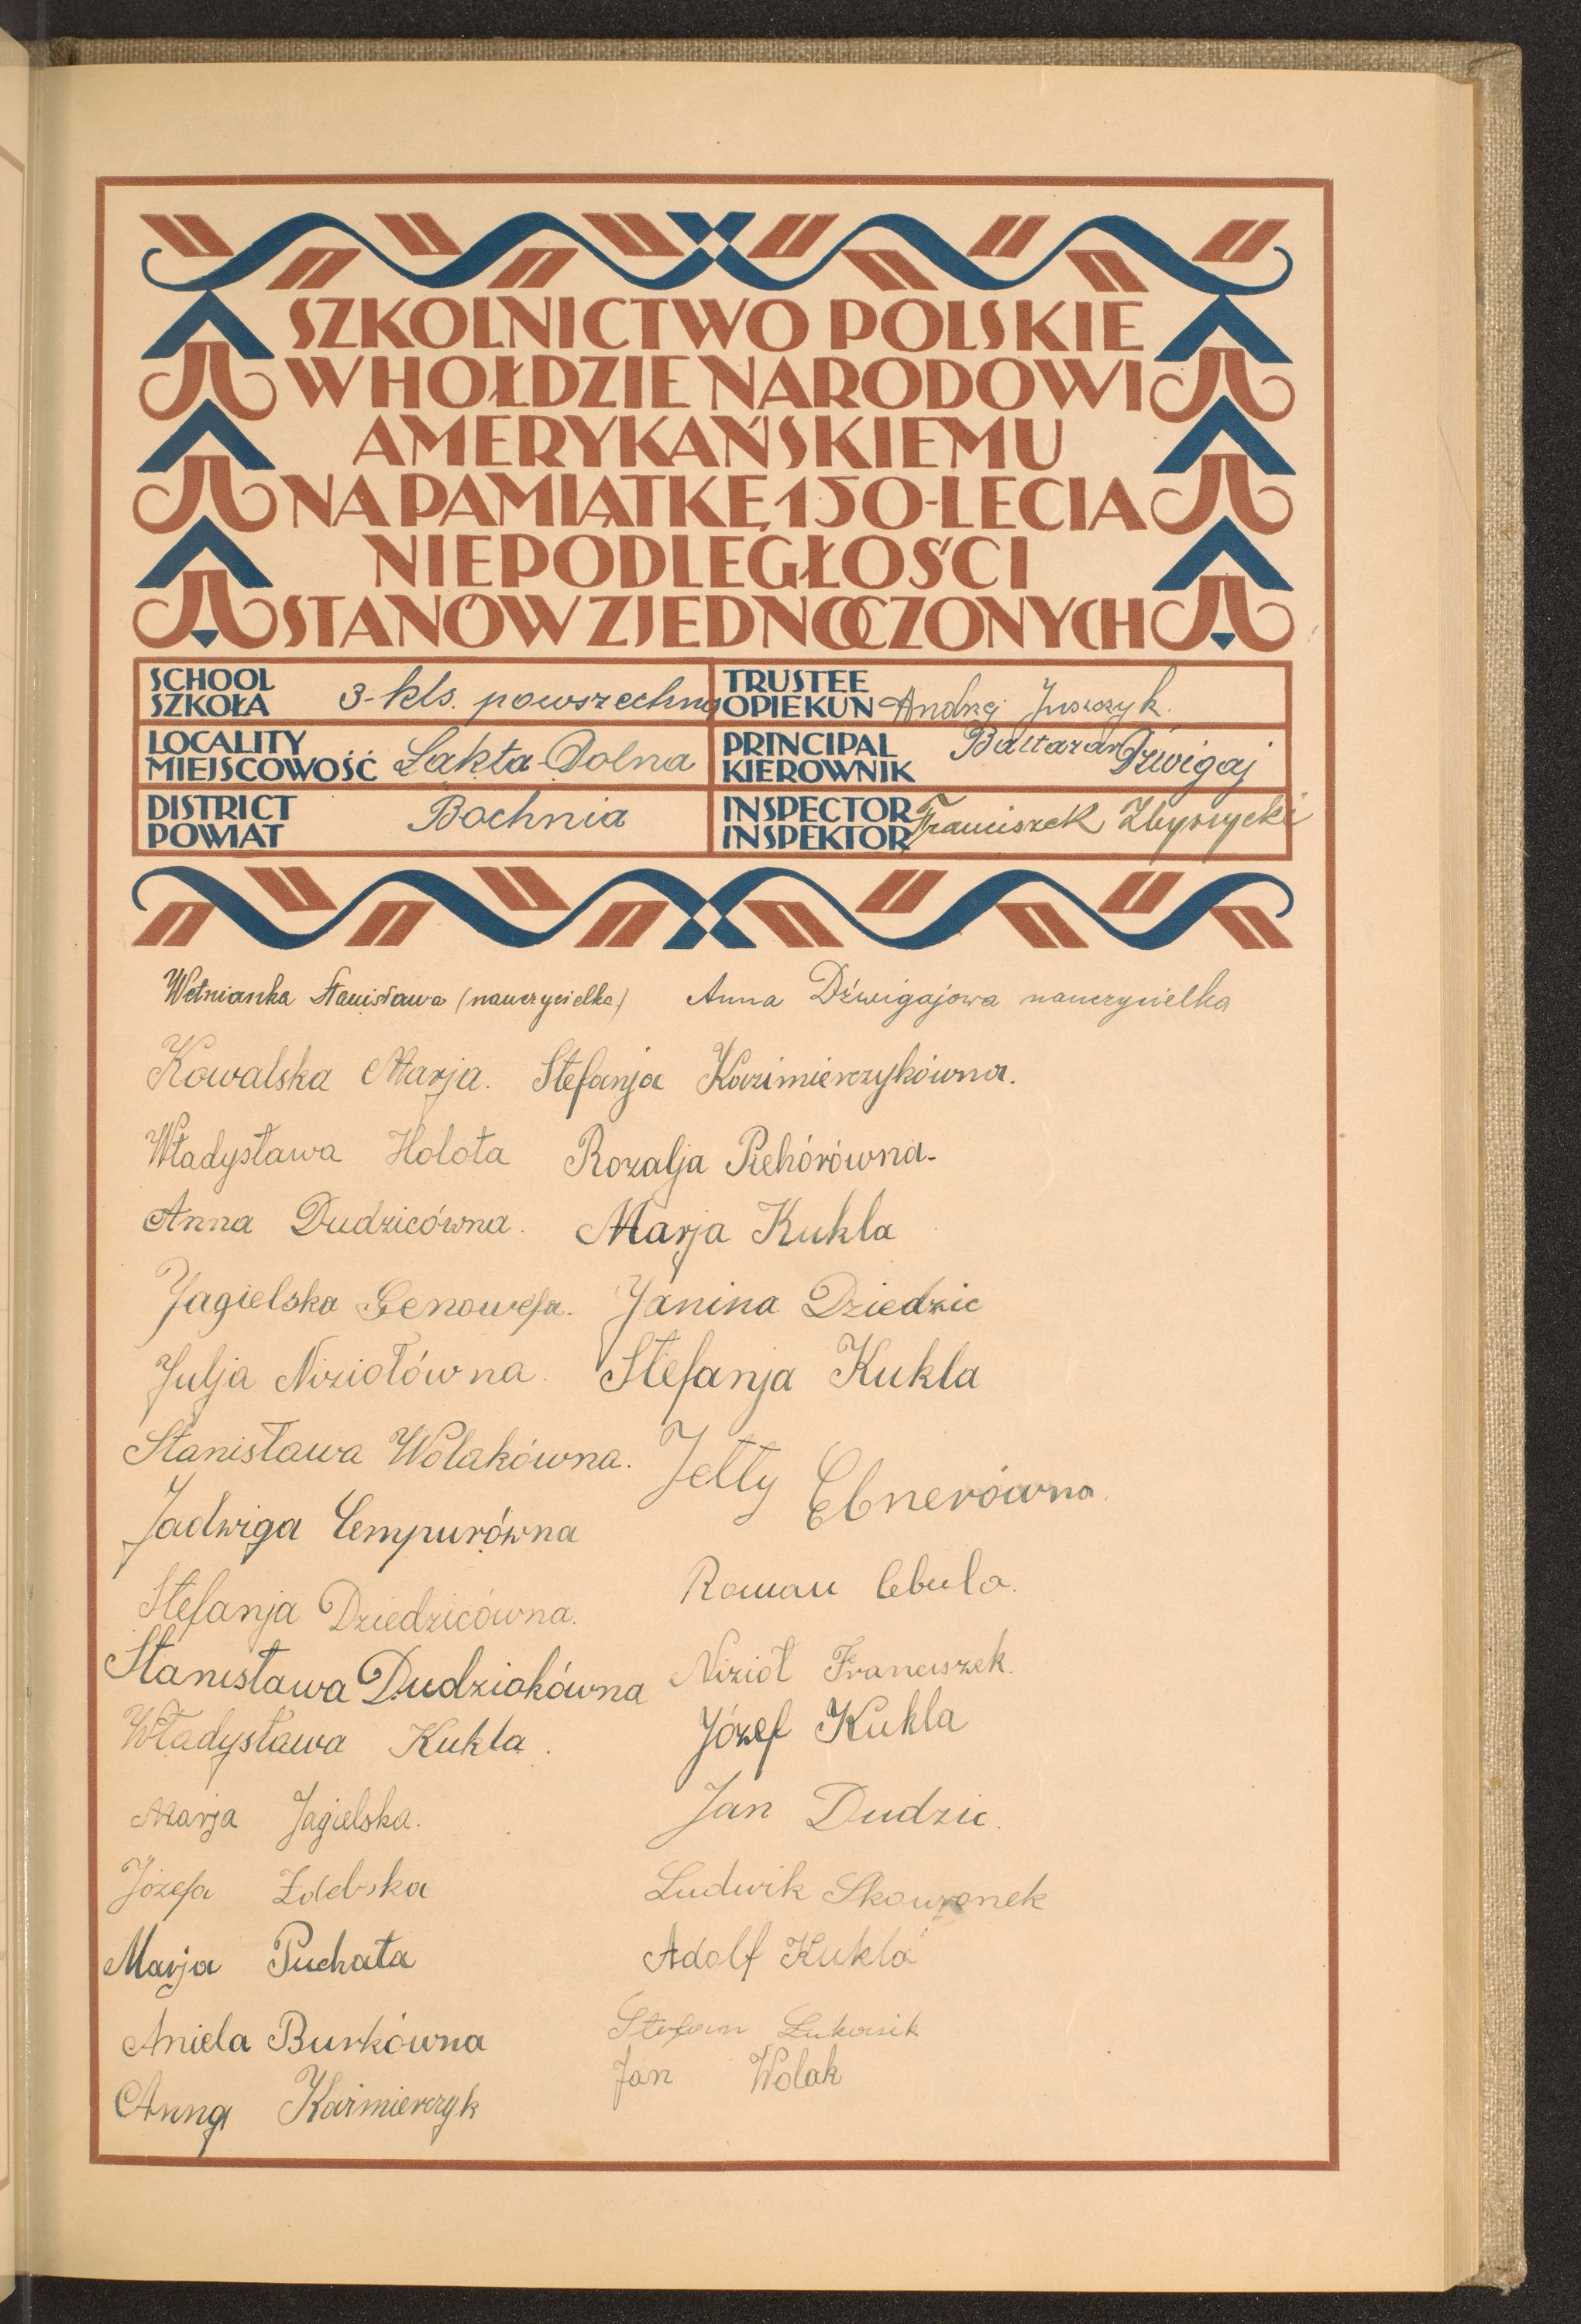 SZKOLNICTWO POLSKIE
W HOŁDZIE NARODOWI
AMERYKAŃSKIEMU
NA PAMIĄTKĘ 150-LECIA
NIEPODLEGŁOŚCI
STANÓW ZJEDNOCZONYCH
SCHOOL
SZKOŁA 3-kls. powszechna
TRUSTEE
OPIEKUN Andrzej Juszczyk.
LOCALITY
MIEJSCOWOŚĆ Łąkta-Dolna
PRINCIPAL
KIEROWNIK Baltazar Dźwigaj
DISTRICT
POWIAT Bochnia
INSPECTOR
INSPEKTOR Franciszek Zbyszycki
Wełnianka Stanisława (nauczycielka) Anna Dźwigajowa nauczycielka
Kowalska Marja. Stefanja Kazimierczykówna.
Władysława Holota Rozalja Pichórówna-
Anna Dudzicówna. Marja Kukla
Jagielska Genowefa. Janina Dziedzic
Julja Niziołówna. Stefanja Kukla
Stanisława Wolakówna. Jetty Ebnerówna.
Jadwiga Cempurówna
Stefanja Dziedzicówna. Roman Cebula.
Stanisława Dudziakówna Nizioł Franciszek.
Władysława Kukla. Józef Kukla
Marja Jagielska. Jan Dudzic.
Józefa Zdebska Ludwik Skowronek
Marja Puchała Adolf Kukla
Aniela Burkówna Stefan Łukasik
Anna Kaźmierczyk Jan Wolak